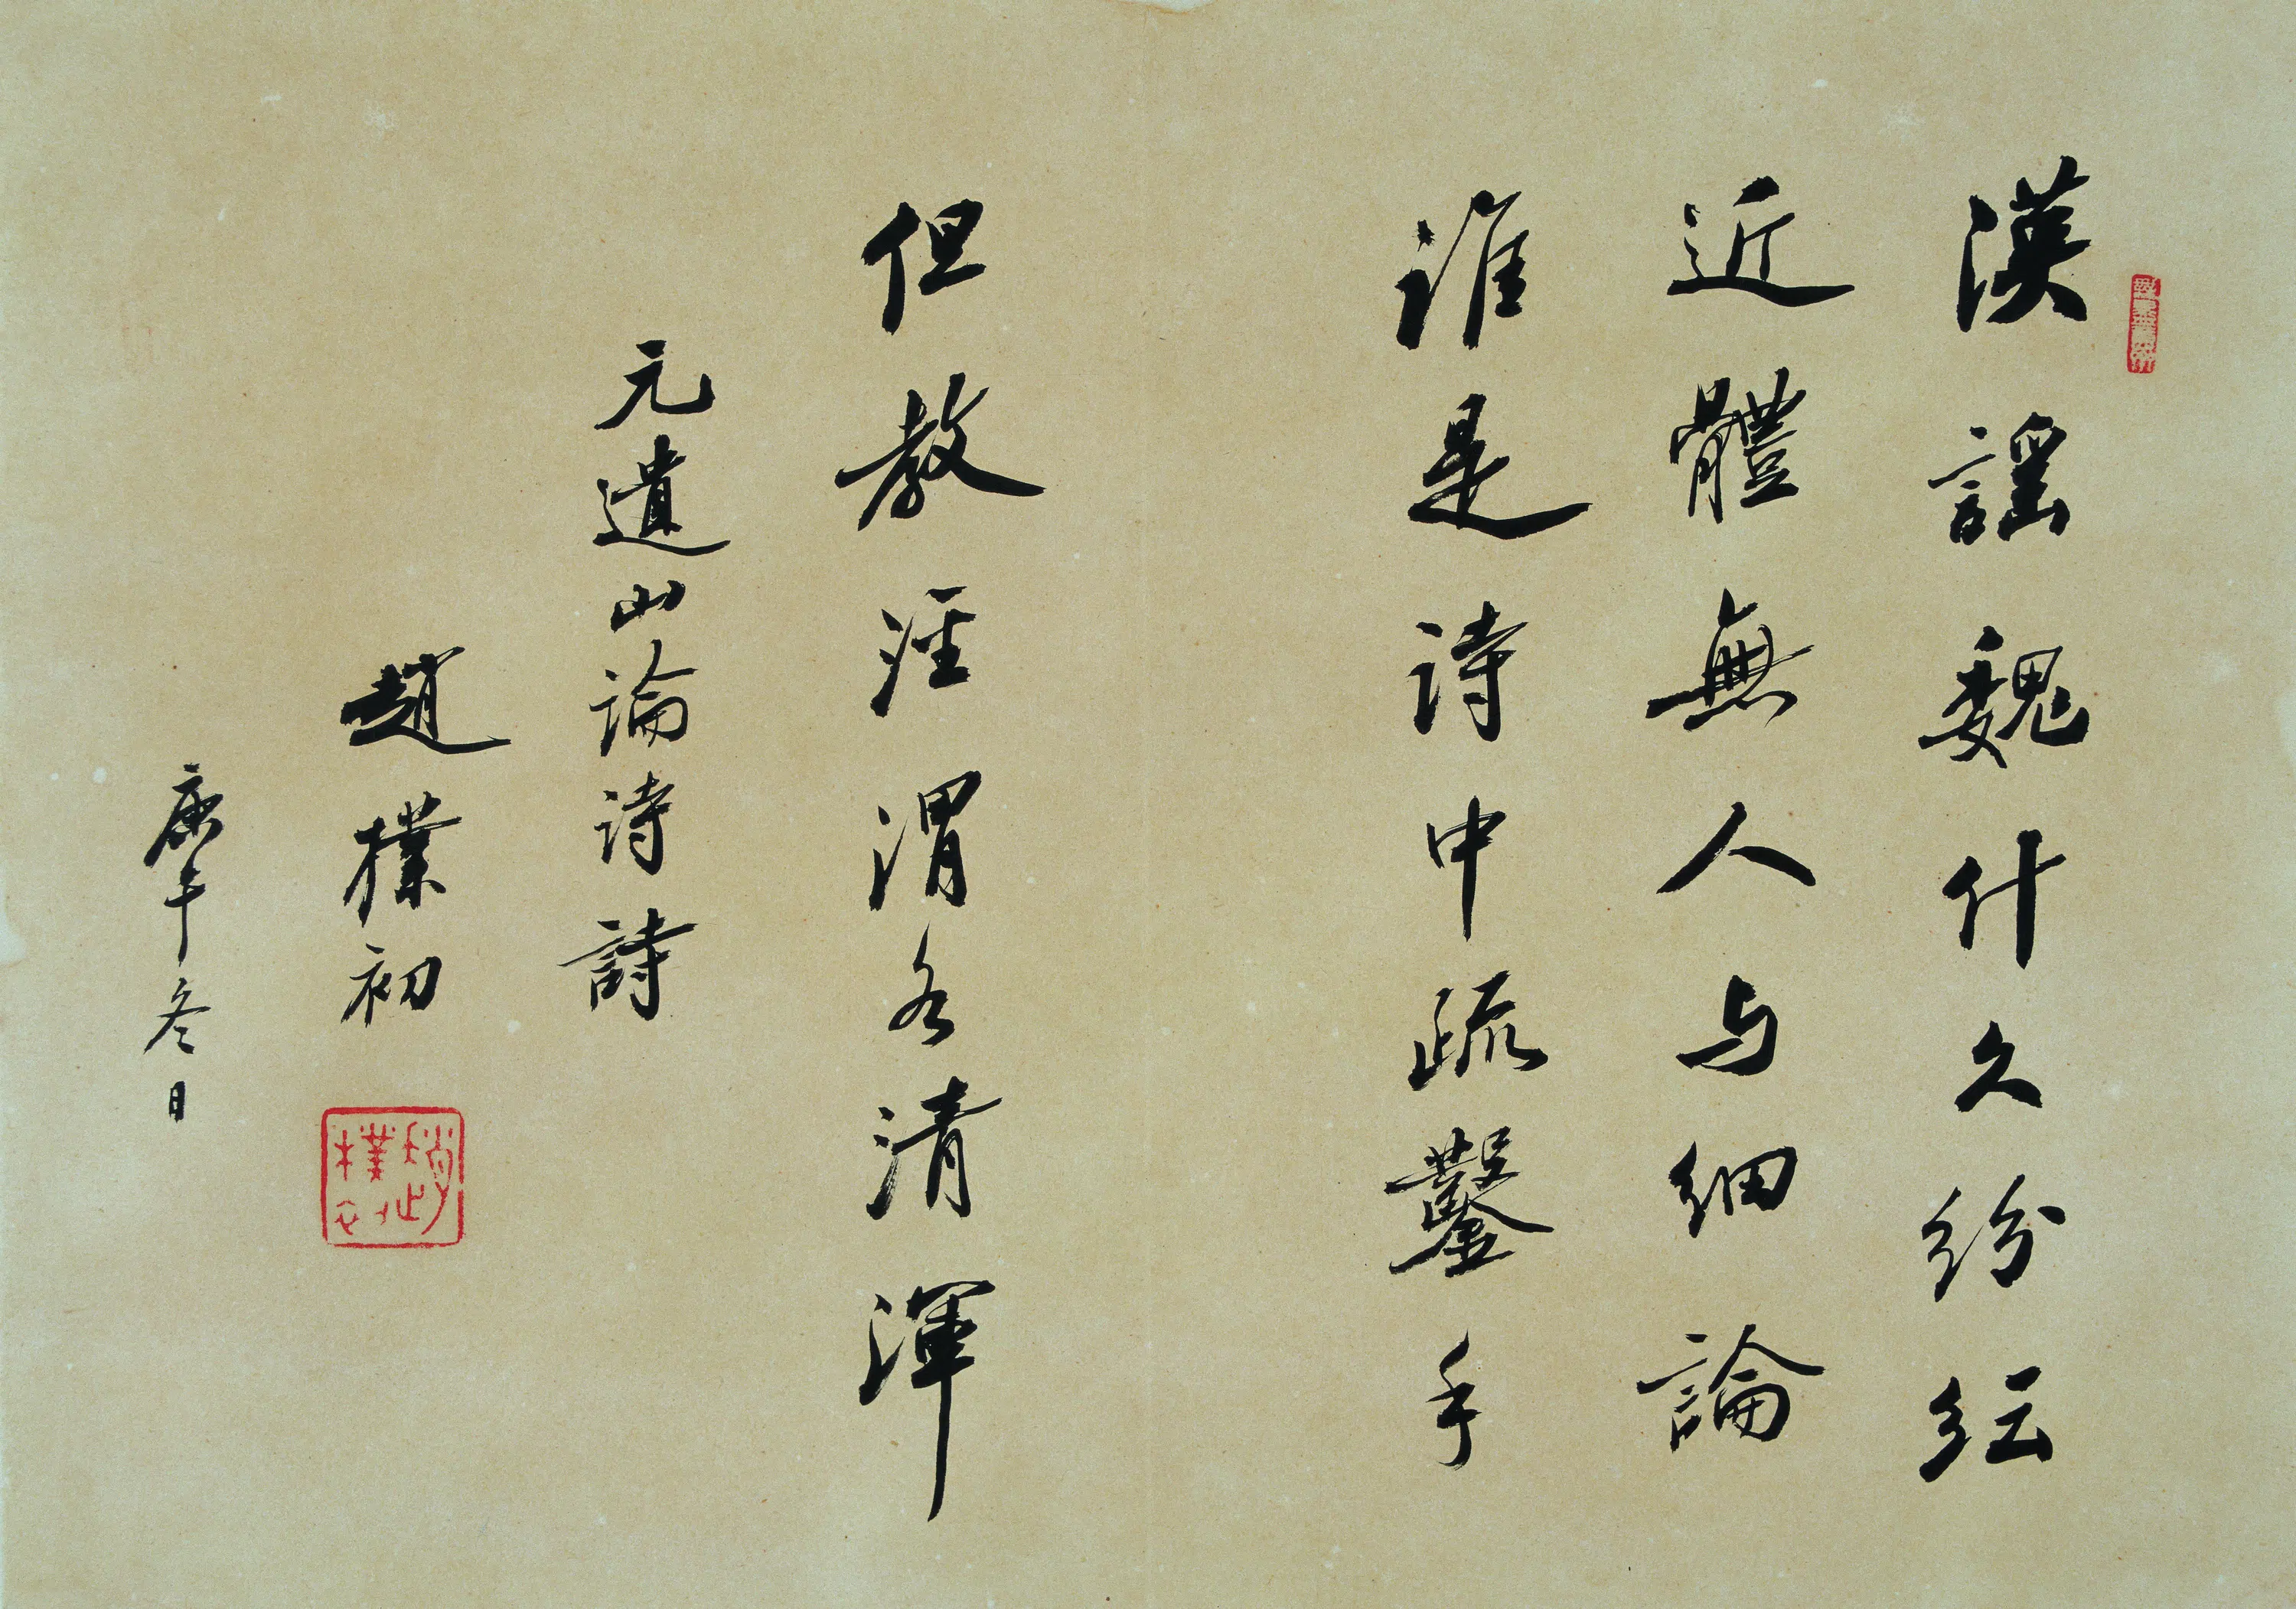 漢謡魏什久纷纭
近體無人与细論
谁是诗中疏鑿手
但教泾渭各清渾
元遺山论诗詩
趙樸初
庚午冬日